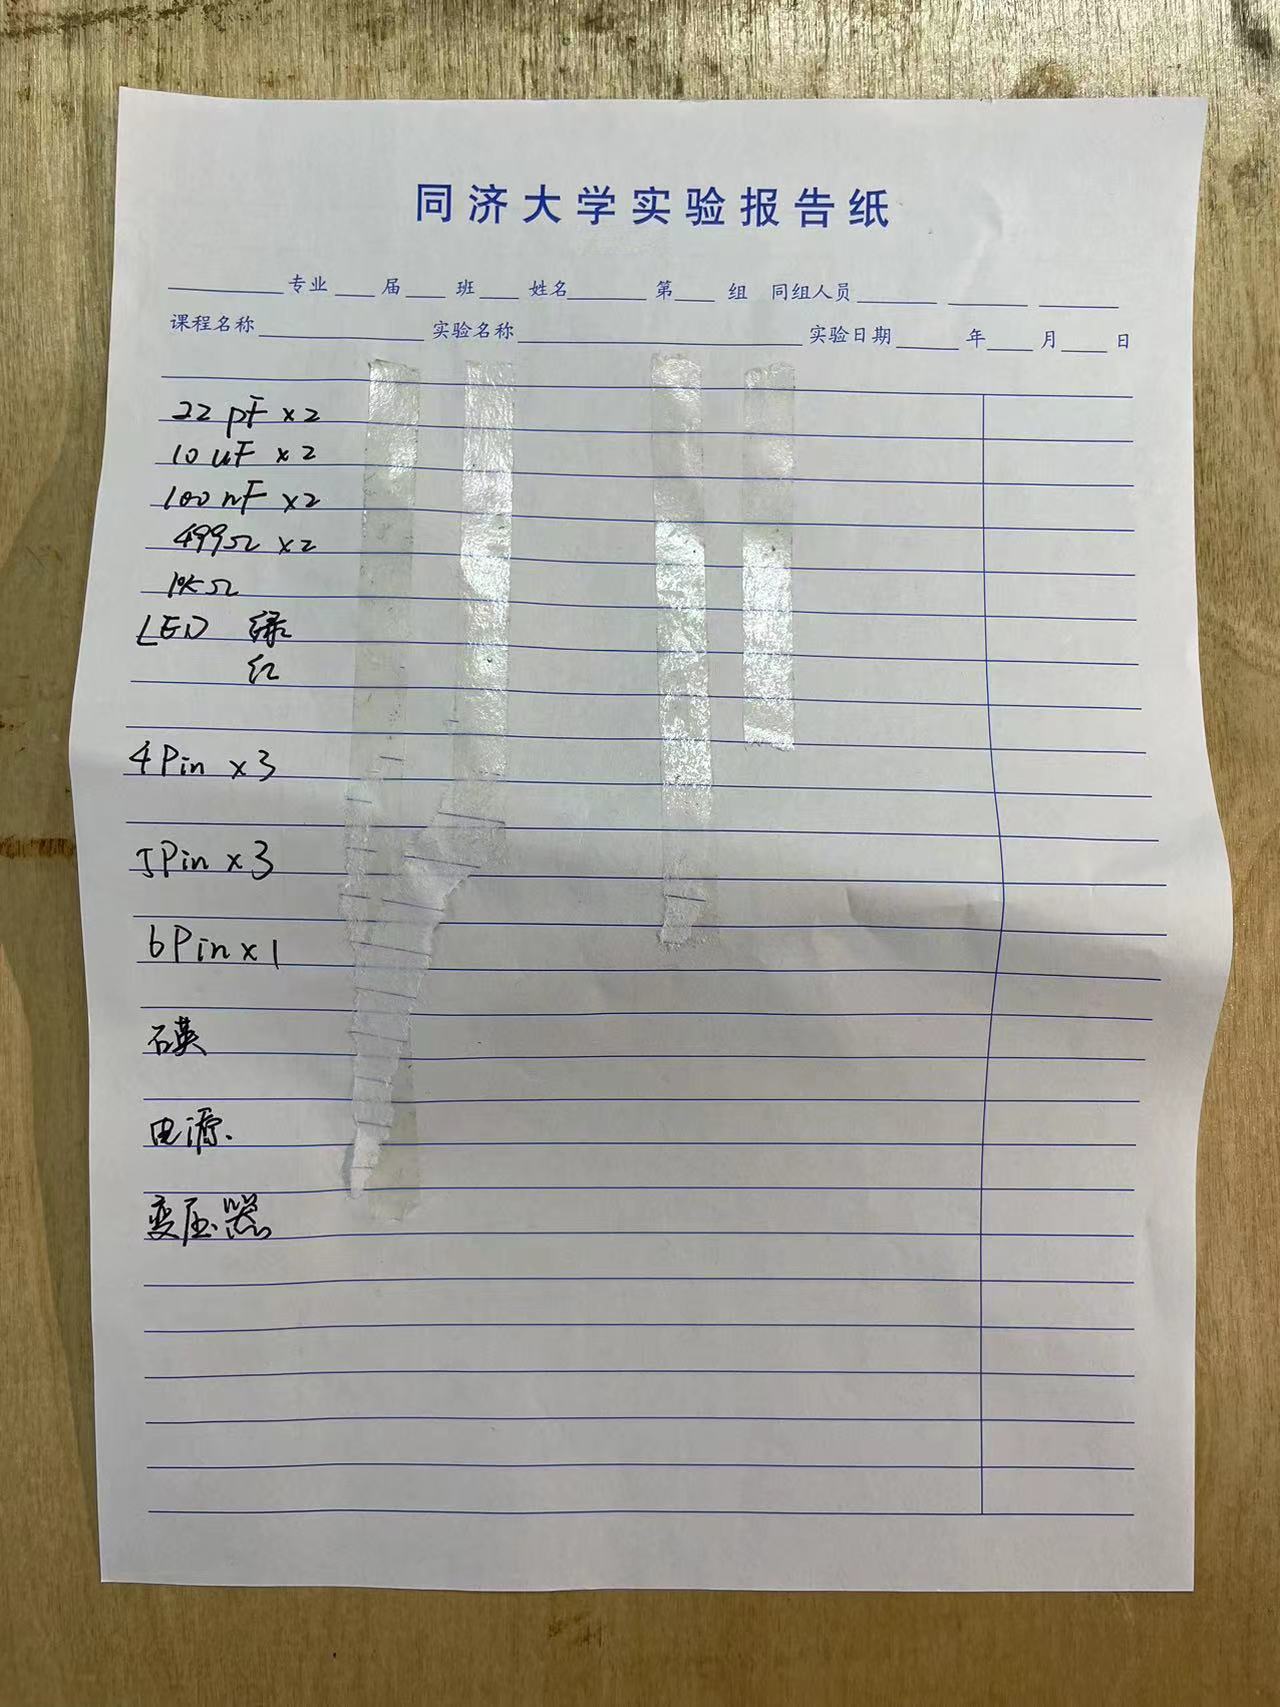 同济大学实验报告纸
专业 届 班 姓名 第 组 同组人员
课程名称 实验名称 实验日期 年 月 日
22pF x2
10uF x2
100nF x2
499Ω x2
1kΩ
LED 绿
红
4Pin x3
5Pin x3
6Pin x1
石英
电源.
变压器